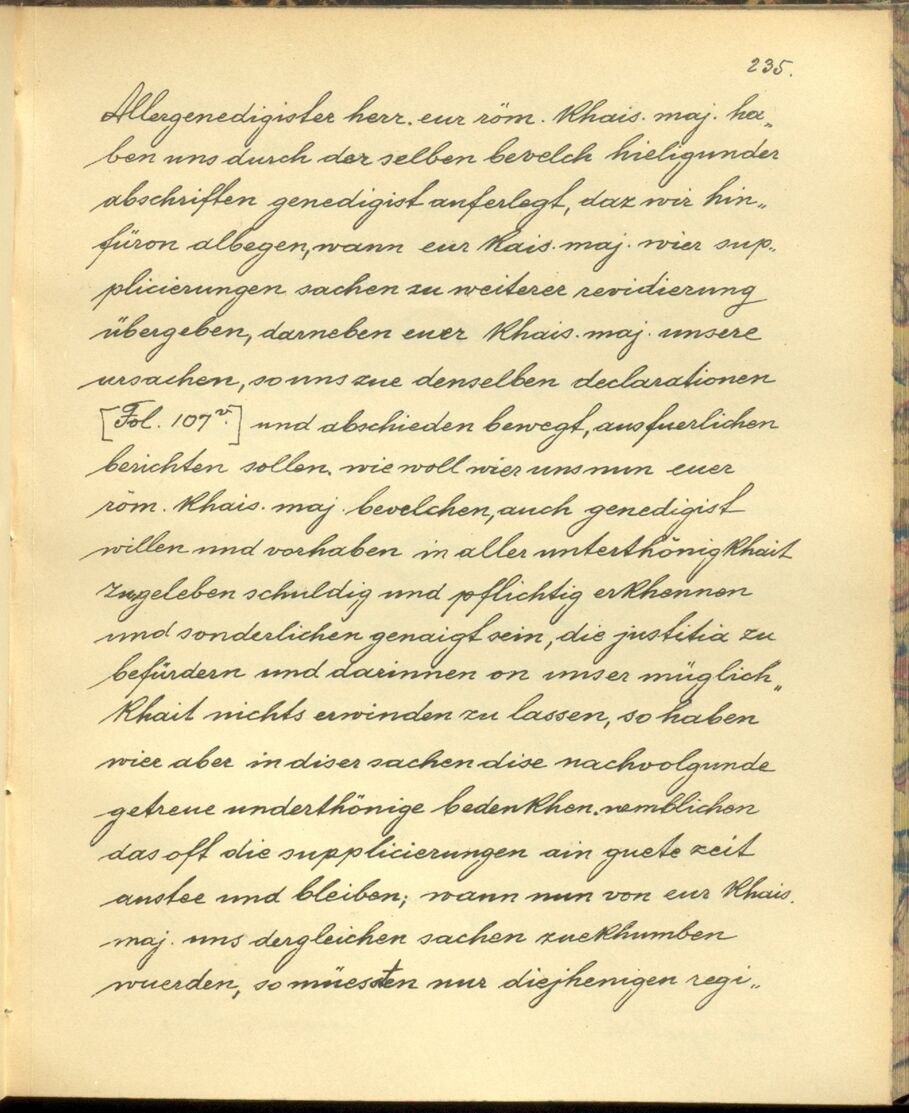 235.
Allergenedigister herr. eur röm. Khais. maj. ha„
ben uns durch der selben bevelch hieligunder
abschriften genedigist auferlegt, daz wir hin„
füron albegen, wann eur Kais. maj. wier sup„
plicierungen sachen zu weiterer revidierung
übergeben, darneben euer Khais. maj. unsere
ursachen, so uns zue denselben declarationen
[Fol. 107v.] und abschieden bewegt, ausfuerlichen
berichten sollen. wie woll wier uns nun euer
röm. Khais. maj. bevelchen, auch genedigist
willen und vorhaben in aller unterthönigkhait
zu geleben schuldig und pflichtig erkhennen
und sonderlichen genaigt sein, die justitia zu
befürdern und darinnen on unser müglich„
Khait nichts erwinden zu lassen, so haben
wier aber in diser sachen dise nachvolgunde
getreue underthönige bedenkhen. nemblichen
das oft die supplicierungen ain guete zeit
anstee und bleiben; wann nun von eur Khais.
maj. uns dergleichen sachen zuekhumben
wuerden, so müessten nur diejhenigen regi„